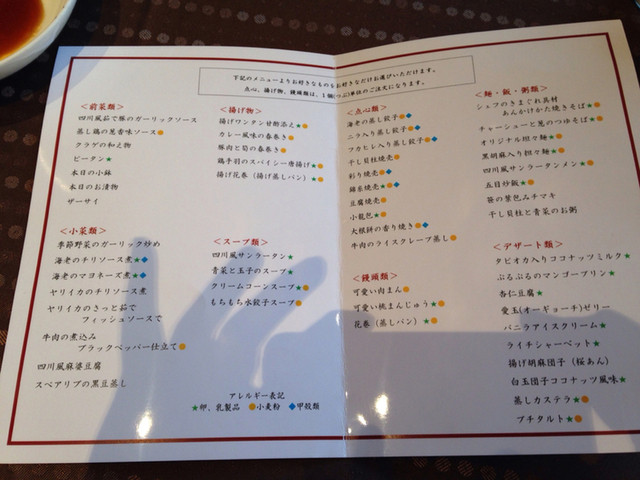 下記のメニューよりお好きなものをお好きなだけお選びいただけます。
点心、揚げ物、饅頭類は、1個(つぶ)単位のご注文になります。
<前菜類>
四川風茹で豚のガーリックソース
蒸し鶏の葱香味ソース●
クラゲの和え物
ピータン★
本日の小鉢
本日のお漬物
ザーサイ
<小菜類>
季節野菜のガーリック炒め
海老のチリソース煮★◆
海老のマヨネーズ煮★◆
ヤリイカのチリソース煮
ヤリイカのさっと茹で
フィッシュソースで
牛肉の煮込み
ブラックペッパー仕立て●
四川風麻婆豆腐
スペアリブの黒豆蒸し
<揚げ物>
揚げワンタン甘酢添え★●
カレー風味の春巻き●
豚肉と筍の春巻き●
鶏手羽のスパイシー唐揚げ★●
揚げ花巻(揚げ蒸しパン)★●
<スープ類>
四川風サンラータン★
青菜と玉子のスープ★
クリームコーンスープ★●
もちもち水餃子スープ●
アレルギー表記
★卵、乳製品 ●小麦粉 ◆甲殻類
<点心類>
海老の蒸し餃子●◆
ニラ入り蒸し餃子●◆
フカヒレ入り蒸し餃子●◆
干し貝柱焼売●
彩り焼売●◆
錦糸焼売★●◆
豆腐焼売●
小籠包★●
大根餅の香り焼き●◆
牛肉のライスクレープ蒸し●
<饅頭類>
可愛い肉まん●
可愛い桃まんじゅう★●
花巻(蒸しパン)★●
<麺・飯・粥類>
シェフのきまぐれ具材
あんかけかた焼きそば★●
チャーシューと葱のつゆそば★●
オリジナル担々麺★●
黒胡麻入り担々麺★●
四川風サンラータンメン★●
五目炒飯★●
笹の葉包みチマキ
干し貝柱と青菜のお粥
<デザート類>
タピオカ入りココナッツミルク★
ぷるぷるのマンゴープリン★
杏仁豆腐★
愛玉(オーギョーチ)ゼリー
バニラアイスクリーム★
ライチシャーベット★
揚げ胡麻団子(桜あん)
白玉団子ココナッツ風味★
蒸しカステラ★●
プチタルト★●